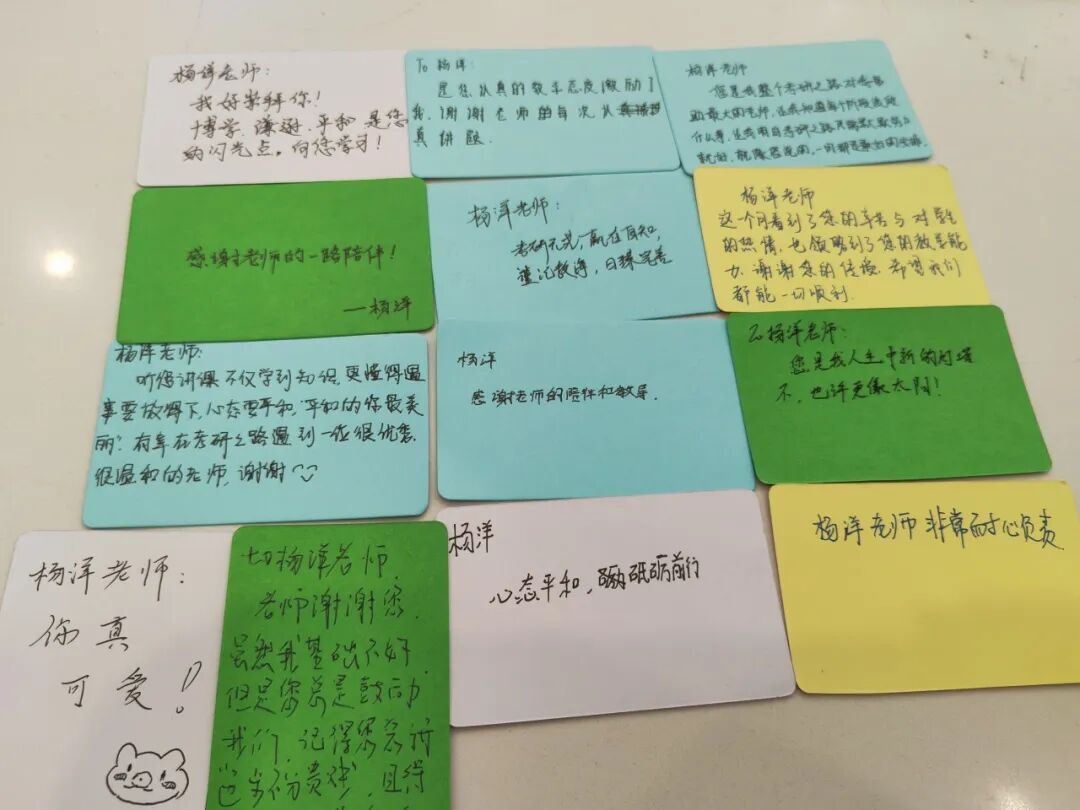 杨洋老师:
我好崇拜你!
博学、谦逊、平和 是您
的闪光点。向您学习!
To 杨洋:
是您认真的教学态度激励了
我,谢谢老师的每次认真
真讲题.
杨洋老师
您是我整个考研之路对我帮
助最大的老师,
什么事,
就好,就像您说的,一切都是最好的安排.
感谢老师的一路陪伴!
——杨洋
杨洋老师:
考研不苦,赢在自知,
谨记教诲,日臻完善
杨洋老师
这个月看到了您的辛苦与对学生
的热情,也领略到了您的教学能
力,谢谢您的付出,希望我们
都能一切顺利.
杨洋老师:
听您讲课不仅学到知识,更懂得遇
事要放得下,心态要平和,平和的你最美
丽?有幸在考研之路遇到一位很优秀.
很温和的老师,谢谢
杨洋
感谢老师的陪伴和教导.
To 杨洋老师:
您是我人生中新的灯塔
不,也许更像太阳!
杨洋老师:
你真
可爱!
To 杨洋老师.
老师谢谢您.
虽然我基础不好
但是您总是鼓励
我们,记得您总讲
杨洋
心态平和,砥砺前行
杨洋老师 非常耐心负责